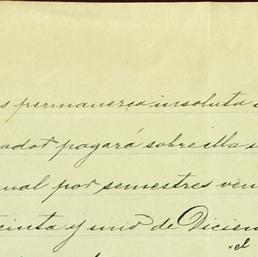 s permanezca insoluta
ador pagará sobre ella
ual por semestres ven
einta y uno de Diciem
el